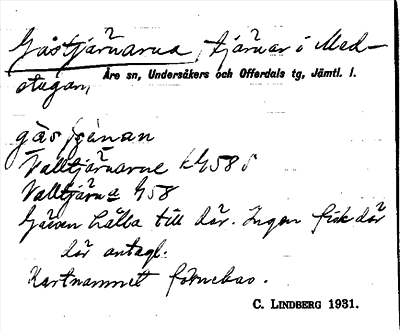 Gåstjärnarna, tjärnar i Med-
Åre sn, Undersåkers och Offerdals tg, Jämtl. l.
stugan,
gås
Valltjärnarne k G58 S
Valltjärna G58
Gässen hålla till där. Ingen fisk där
där antagl.
Kartnamnet förnekas.
C. LINDBERG 1931.